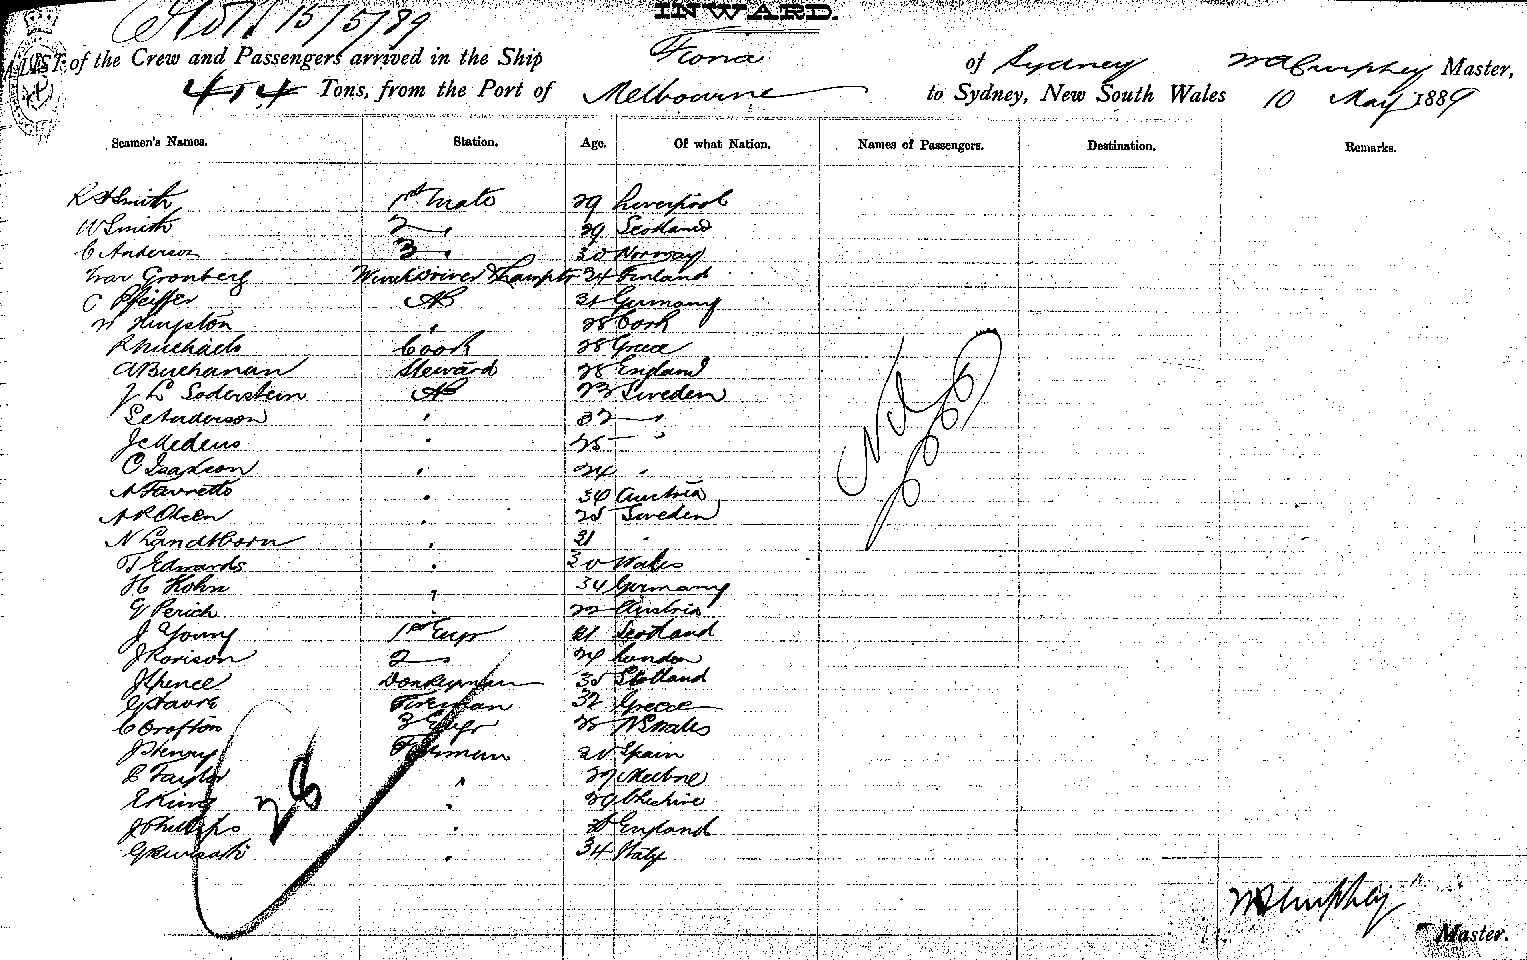 15/5/89
INWARD.
A LIST of the Crew and Passengers arrived in the Ship Fiona of Sydney Master,
Tons, from the Port of Melbourne to Sydney, New South Wales 10 May 1889
Seamen's Names. Station. Age. Of what Nation. Names of Passengers. Destination. Remarks.
Smith 1st Mate 29 Liverpool
W Smith 2 " 29 Scotland
C Anderson 3 " 30 Norway
Gronberg 34 Finland
C Pfeiffer AB Germany
Kingston " 28 Cork
R Michaels Cook 28 Greece
A Buchanan Steward 28 England
J L Soderstein AB 23 Sweden
Anderson " 32 "
" 25 "
" 24 "
N Favretto " Austria
Olsen " 25 Sweden
N Landtborn " 31 "
T Edwards " 30 Wales
H Kohn " 34 Germany
G Perich " 22 Austria
J Young 1st Engr Scotland
J Rorison 2 " 24 London
J Spence Donkeyman 35 Scotland
Favre Fireman 32 Greece
C Crofton 3 Engr 28 N S Wales
J Henry Fireman Spain
Taylor " 27 Melbne
E King " 29 Cheshire
J Phillips " England
" 34 Italy
Nil
28
Master.